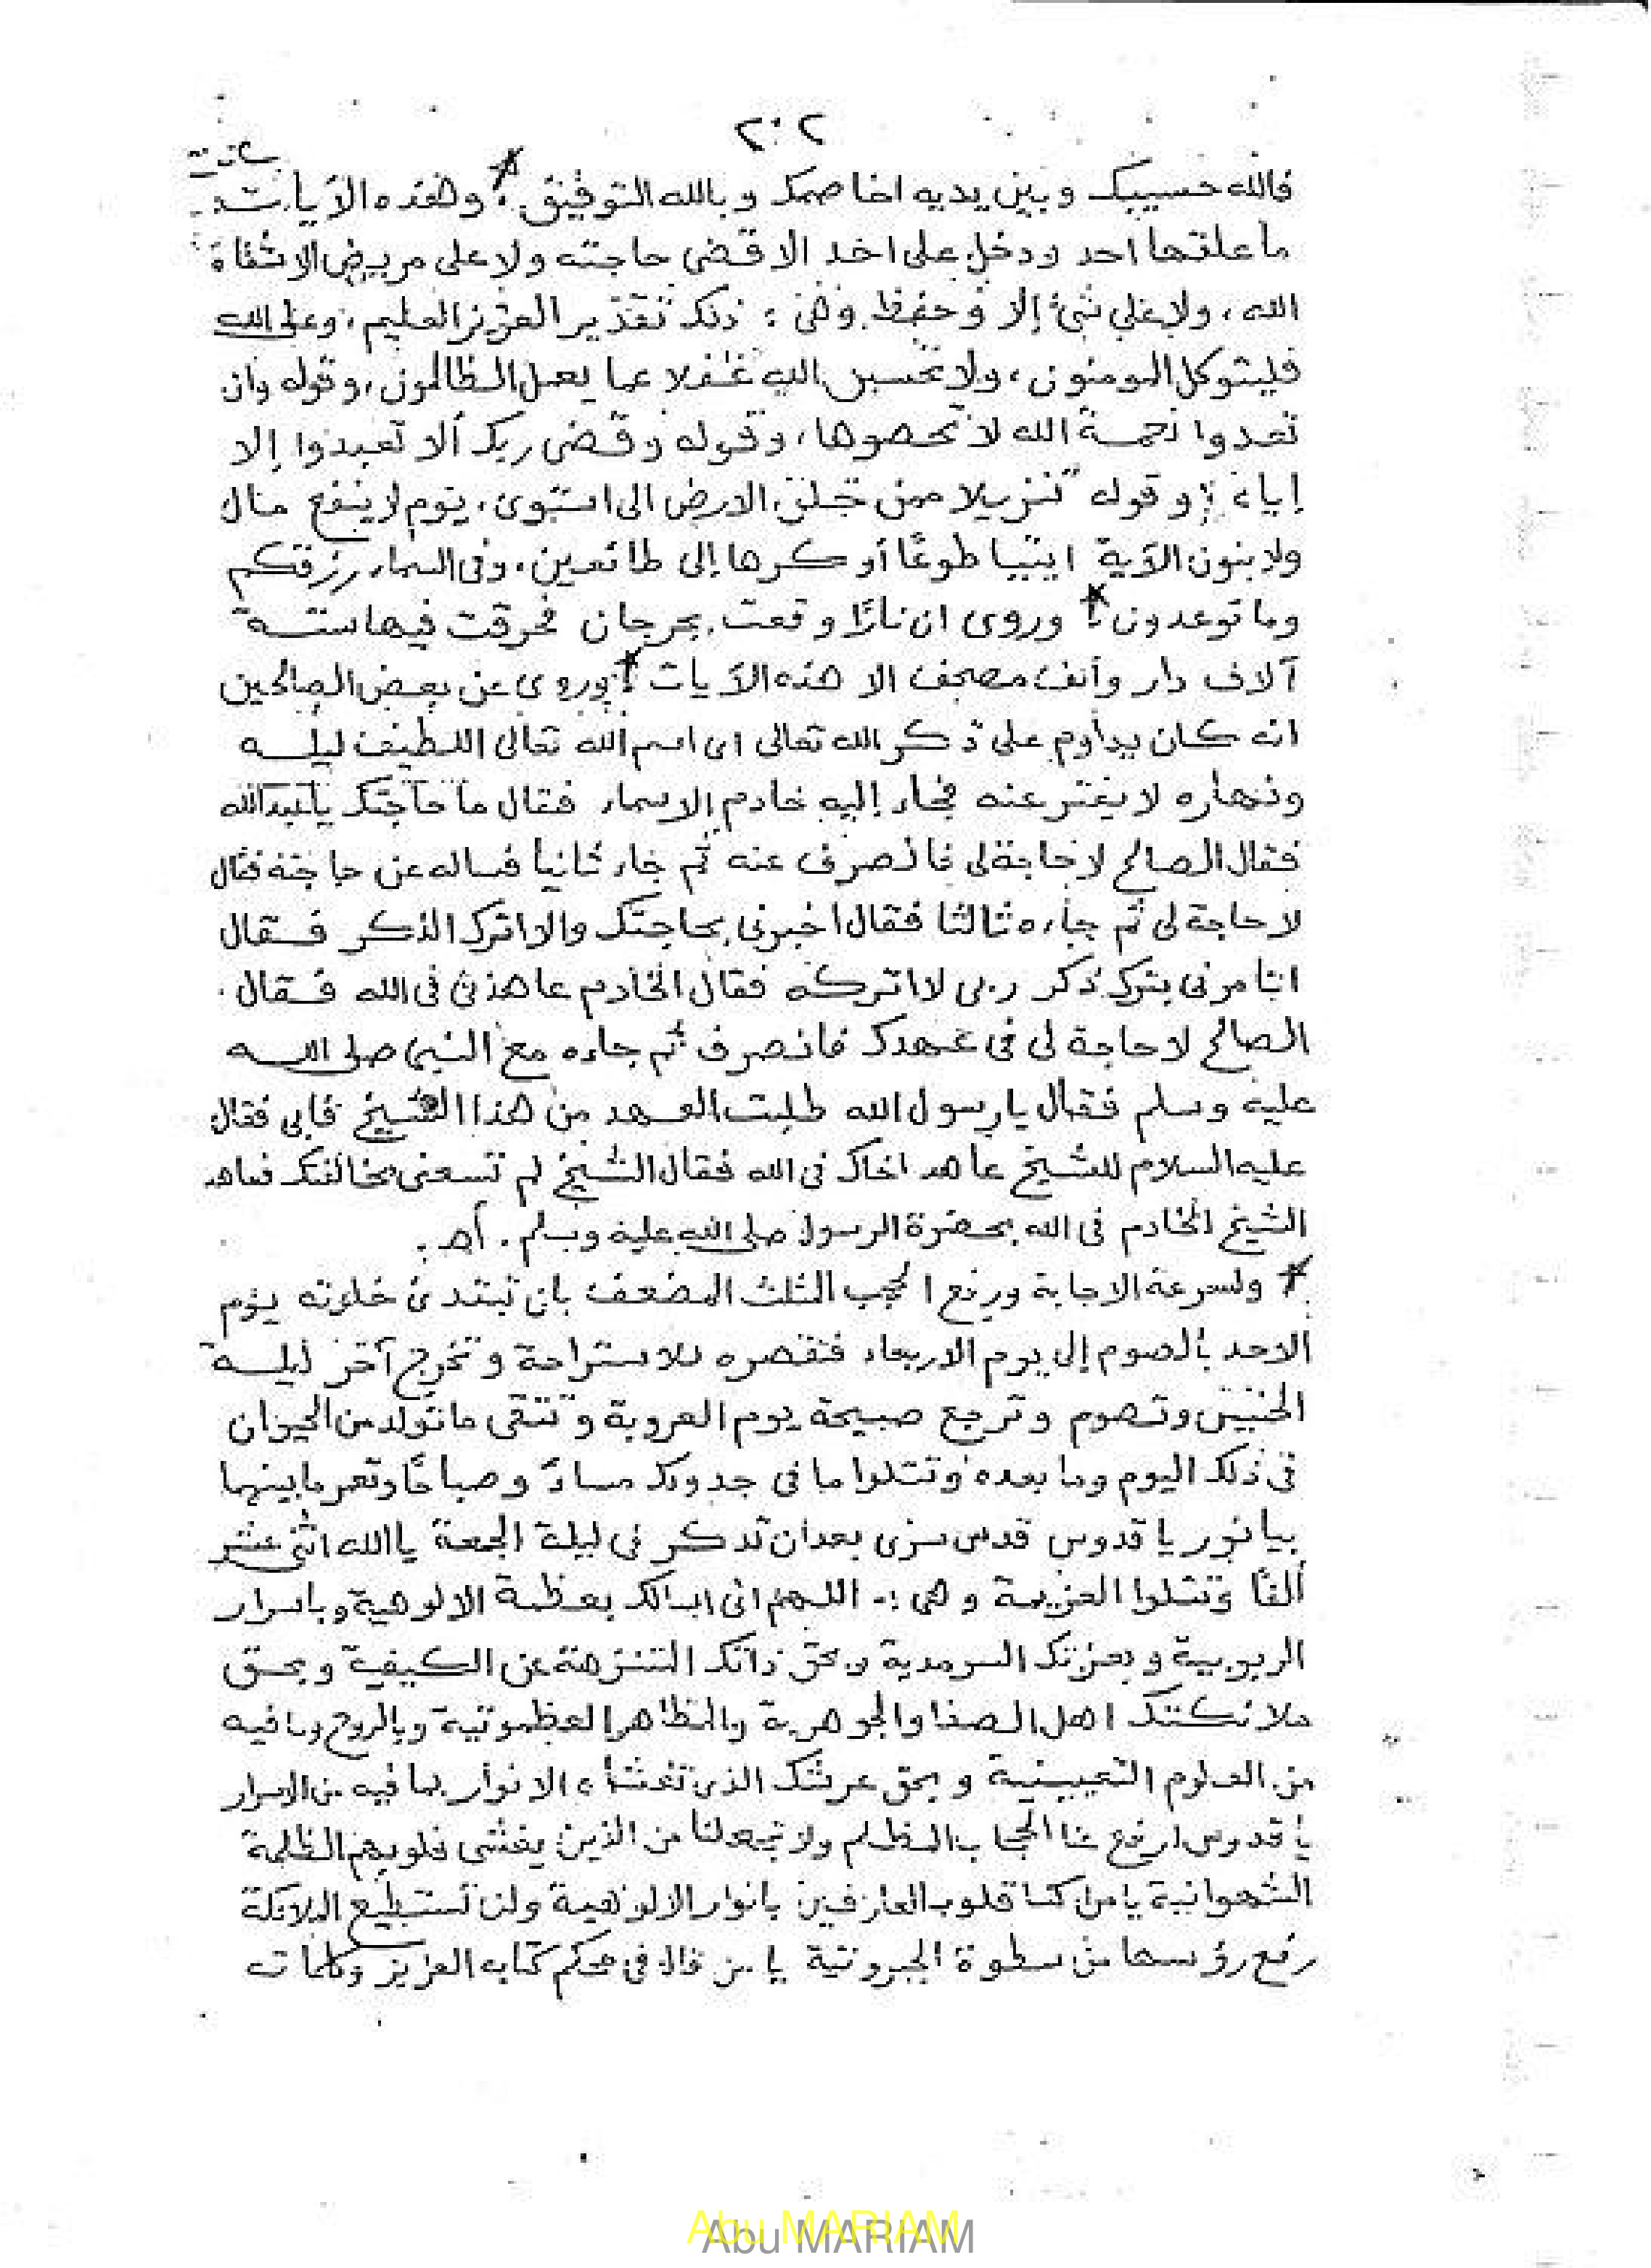 ٢٠٢
فالله حسيبك وبين يديه اخاصمك وبالله التوفيق. وهذه الآيات
ما علقها احد ودخل على احد الا قضى حاجته ولا على مريض الا شفاه
الله، ولا على شئ إلا وحفظ. وهى: ذلك تقدير العزيز العليم، وعلى الله
فليتوكل المومنون، ولا تحسبن الله غفلا عما يعمل الظالمون، وقوله وان
تعدوا نعمة الله لا تحصوها، وقوله وقضى ربك ألا تعبدوا إلا
إياه، وقوله تنزيلا ممن خلق الارض الى استوى، يوم لا ينفع مال
ولا بنون الآية ايتيا طوعًا أو كرها إلى طائعين، وفى السماء رزقكم
وما توعدون. وروى ان نارًا وقعت بجرجان فحرقت فيها ستة
آلاف دار وألف مصحف الا هذه الآيات. وروى عن بعض الصالحين
انه كان يداوم على ذكر الله تعالى اى اسم الله تعالى اللطيف ليله
ونهاره لا يفتر عنه فجاء إليه خادم الاسماء فقال ما حاجتك يا عبدالله
فقال الصالح لا حاجة لى فانصرف عنه ثم جاء ثانيا فساله عن حاجته فقال
لا حاجة لى ثم جاءه ثالثا فقال اخبرنى بحاجتك والا اترك الذكر فقال
اتامرنى بترك ذكر ربى لا اتركه فقال الخادم عاهدنى فى الله فقال
الصالح لا حاجة لى فى عهدك فانصرف ثم جاءه مع النبى صلى الله
عليه وسلم فقال يا رسول الله طلبت العهد من هذا الشيخ فابى فقال
عليه السلام للشيخ عاهد اخاك فى الله فقال الشيخ لم تسعنى مخالفتك فعاهد
الشيخ الخادم فى الله بحضرة الرسول صلى الله عليه وسلم. أهـ.
ولسرعة الاجابة ورفع الحجب الثلث المضعف بان تبتدئ خلوته يوم
الاحد بالصوم إلى يوم الاربعاء فتقصره للاستراحة وتخرج آخر ليلة
الخميس وتصوم وترجع صبيحة يوم العروبة وتتقى ما تولد من الحيوان
فى ذلك اليوم وما بعده وتتلوا ما فى جدولك مساءً وصباحًا وتعمر ما بينهما
بيا نور يا قدوس قدس سرى بعد ان تذكر فى ليلة الجمعة يا الله اثنى عشر
ألفًا وتتلوا العزيمة وهى :- اللهم انى اسالك بعظمة الالوهية وباسرار
الربوبية وبعزتك السرمدية وبحق ذاتك المتنزهة عن الكيفية وبحق
ملائكتك اهل الصفا والجوهرية والمظاهر العظموتية وبالروح وما فيه
من العلوم وبحق عرشك الذى تغشاه الانوار بما فيه من الاسرار
يا قدوس ارفع عنا الحجاب المظلم ولا تجعلنا من الذين يغشى قلوبهم الظلمة
الشهوانية يا من كسا قلوب العارفين بانوار الالوهية ولن تستطيع الملائكة
رفع رؤسها من سطوة الجبروتية يا من قال فى محكم كتابه العزيز وكلمات
Abu MARIAM